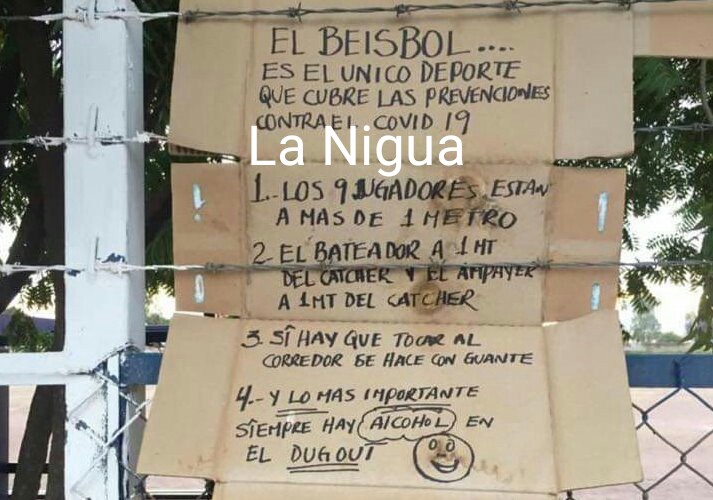 EL BEISBOL....
ES EL UNICO DEPORTE
QUE CUBRE LAS PREVENCIONES
CONTRA EL COVID 19
La Nigua
1.- LOS 9 JUGADORES ESTAN
A MAS DE 1 METRO
2. EL BATEADOR A 1 MT
DEL CATCHER Y EL AMPAYER
A 1 MT DEL CATCHER
3. SÍ HAY QUE TOCAR AL
CORREDOR SE HACE CON GUANTE
4.- Y LO MAS IMPORTANTE
SIEMPRE HAY ALCOHOL EN
EL DUGOUT